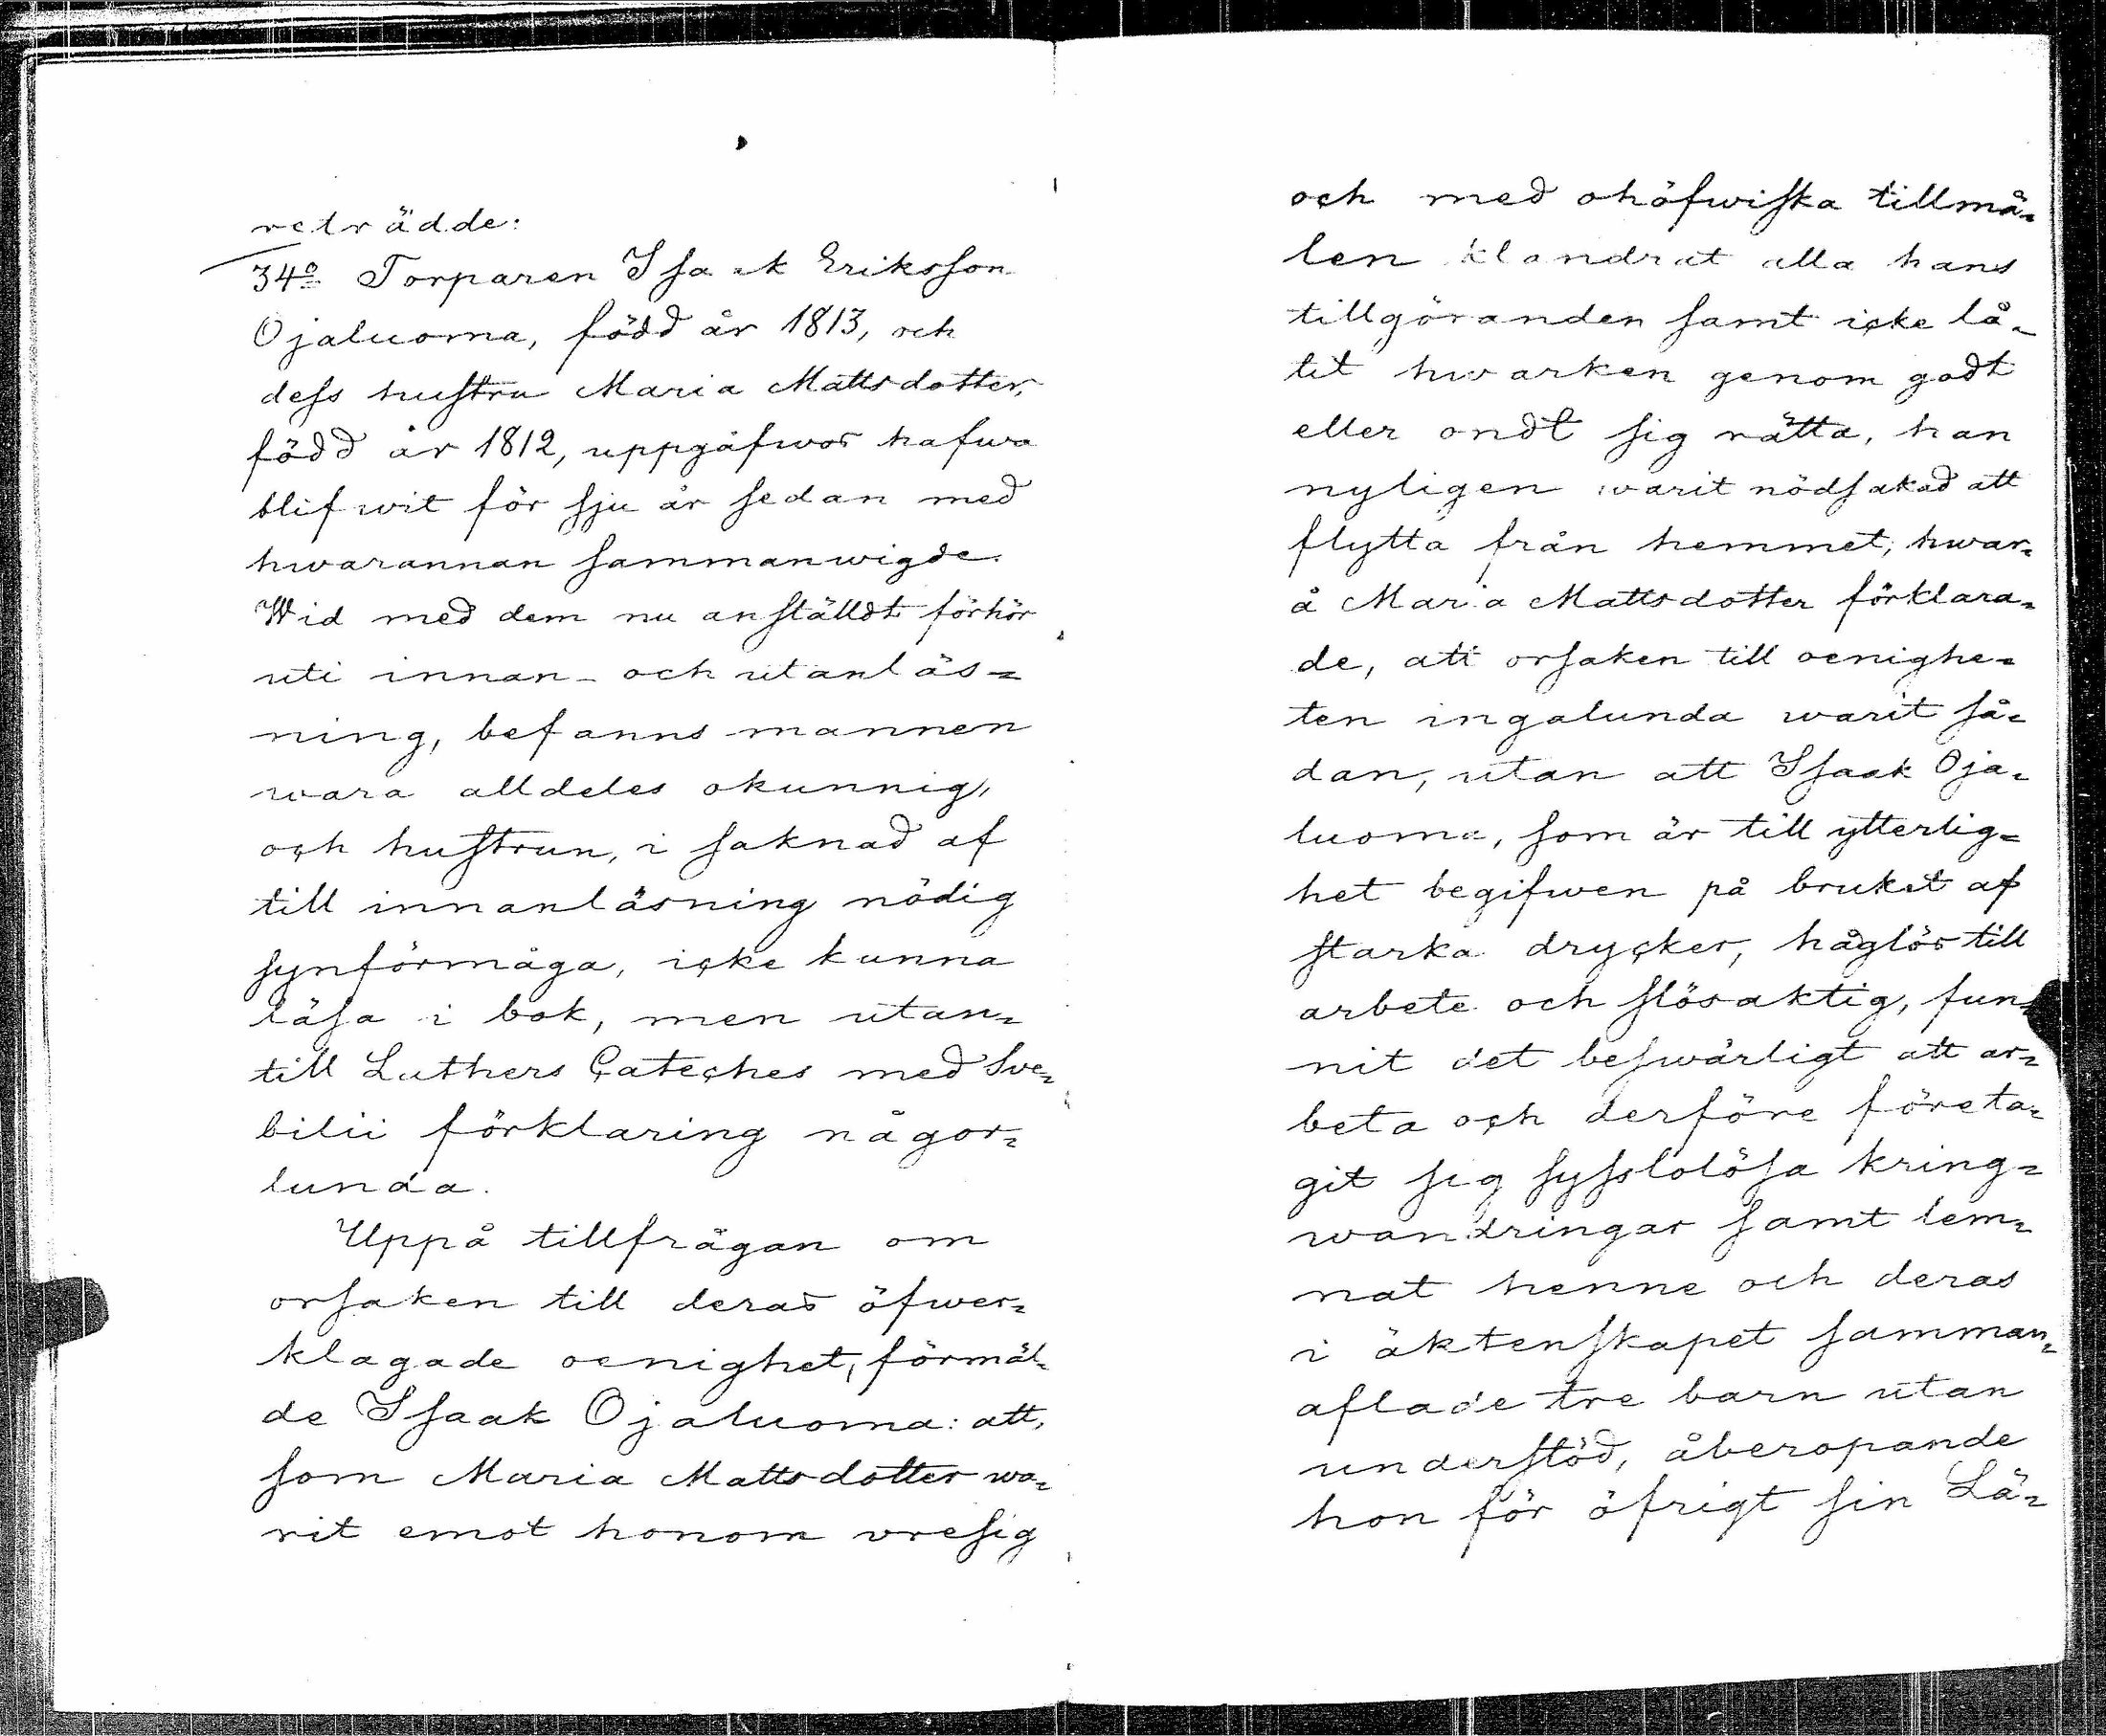 reträdde:
34o Torparen Isaak Eriksson
Ojaluoma, född år 1813, och
dess hustru Maria Mattsdotter,
född år 1812, uppgåfwos hafwa
blifwit för sju år sedan med
hwarannan sammanwigde.
Wid med dem nu anställdt förhör
uti innan- och utanläs=
ning, befanns mannen
wara alldeles okunnig,
och hustrun, i saknad af
till innanläsning nödig
synförmåga, icke kunna
läsa i bok, men utan=
till Luthers Cateches med Sve=
bilii förklaring någor=
lunda.
Uppå tillfrågan om
orsaken till deras öfwer=
klagade oenighet, förmäl=
de Isaak Ojaluoma: att,
som Maria Mattsdotter wa=
rit emot honom vresig
och med ohöfwiska tillmä=
len klandrat alla hans
tillgöranden samt icke lå=
tit hwarken genom godt
eller ondt sig rätta, han
nyligen warit nödsakad att
flytta från hemmet; hwar=
å Maria Mattsdotter förklara=
de, att orsaken till oenighe=
ten ingalunda warit så=
dan, utan att Isaak Oja=
luoma, som är till ytterlig=
het begifwen på bruket af
starka drycker, håglös till
arbete och slösaktig, fun=
nit det beswärligt att ar=
beta och derföre företa=
git sig sysslolösa kring=
wandringar samt lem=
nat henne och deras
i äktenskapet samman=
aflade tre barn utan
understöd, åberopande
hon för öfrigt sin Lä=